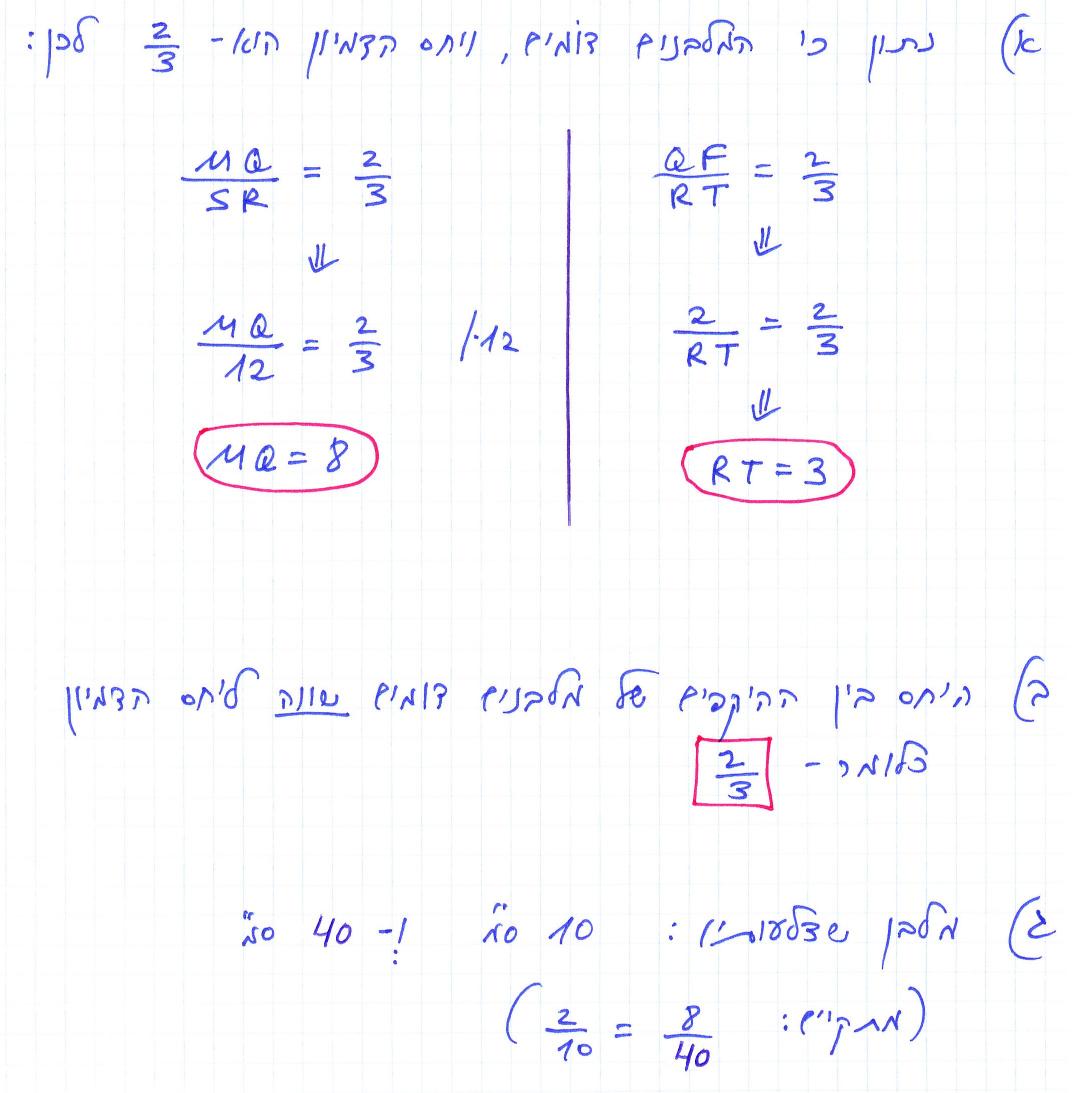 א) נתון כי המלבנים דומים, ויחס הדמיון הוא- 2/3 לכן:
QF/RT = 2/3
⇓
2/RT = 2/3
⇓
RT = 3
MQ/SR = 2/3
⇓
MQ/12 = 2/3 /·12
MQ = 8
ב) היחס בין ההיקפים של מלבנים דומים שווה ליחס הדמיון
כלומר - 2/3
ג) מלבן שצלעותיו: 10 ס"מ ו- 40 ס"מ
(מתקיים: 8/40 = 2/10)